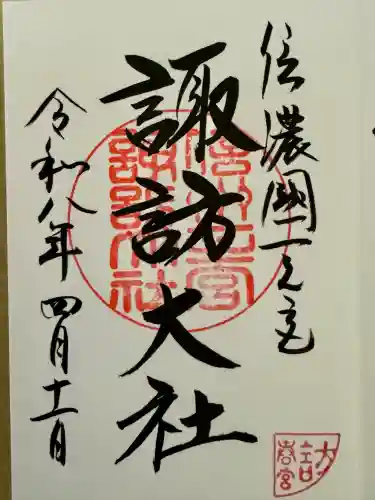 信濃國一之宮
諏訪大社
信州一宮
諏訪大社
令和八年四月十一日
春宮